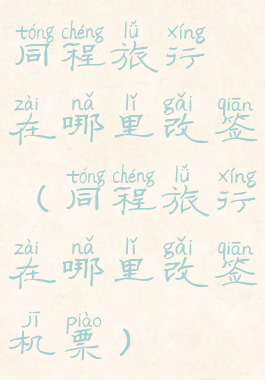 tóng chéng lǚ xíng
同程旅行
zài nǎ lǐ gǎi qiān
在哪里改签
tóng chéng lǚ xíng
（同程旅行
zài nǎ lǐ gǎi qiān
在哪里改签
jī piào
机票）